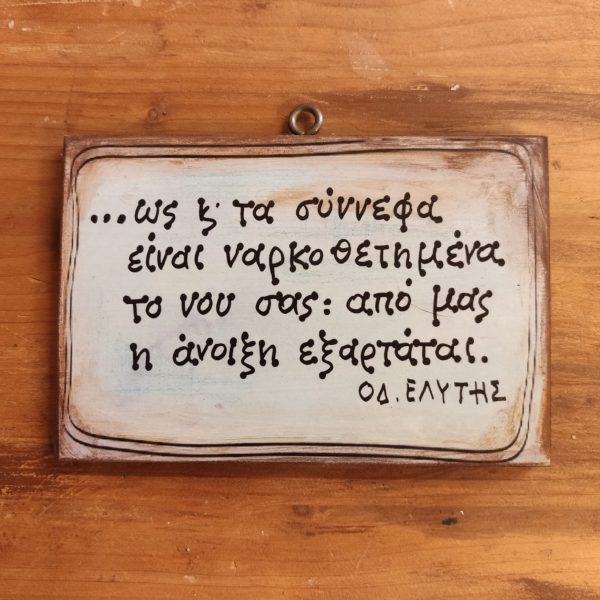 ...ως κ' τα σύννεφα
είναι ναρκοθετημένα
το νου σας: από μας
η άνοιξη εξαρτάται.
ΟΔ. ΕΛΥΤΗΣ